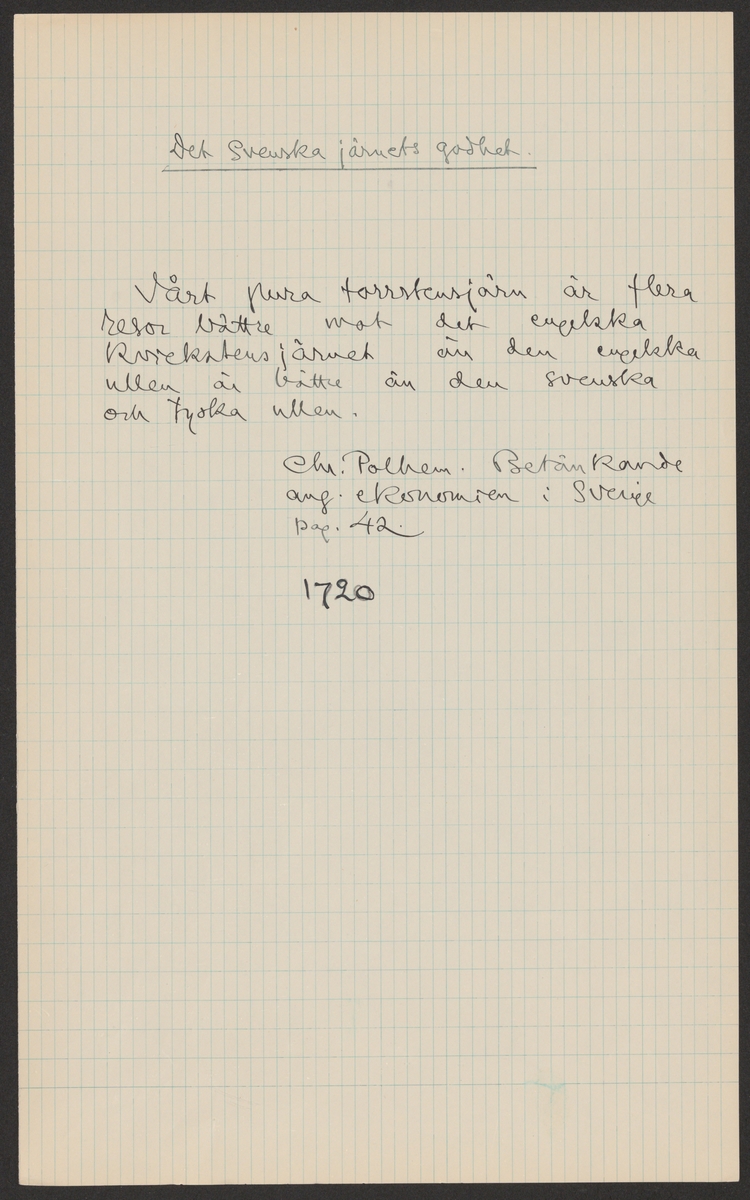 Det Svenska järnets godhet.
Vårt pura torrstensjärn är flera
resor bättre mot det engelska
kvickstensjärnet än den engelska
ullen är bättre än den svenska
och tyska ullen.
Chr. Polhem. Betänkande
ang. ekonomien i Sverige
pag. 42.
1720